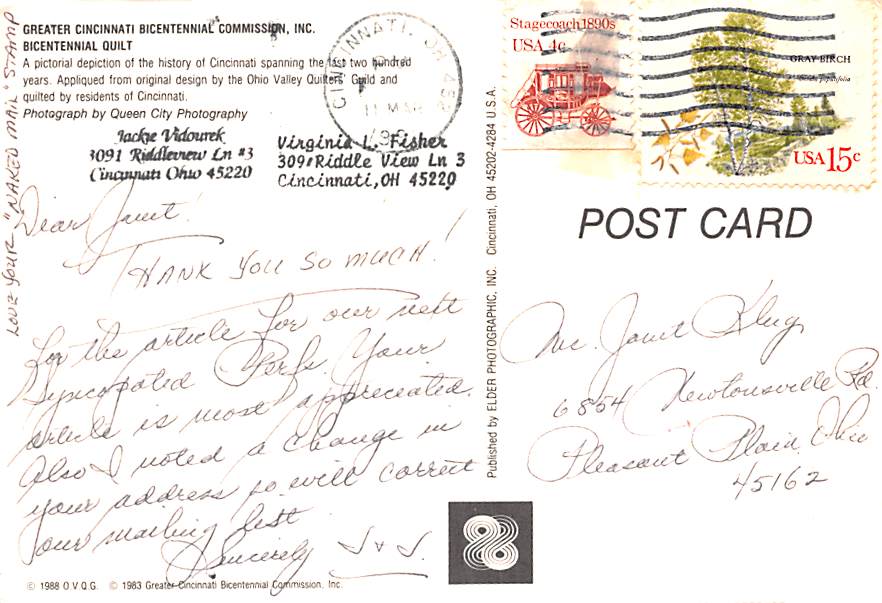 GREATER CINCINNATI BICENTENNIAL COMMISSION, INC.
BICENTENNIAL QUILT
A pictorial depiction of the history of Cincinnati spanning the last two hundred
years. Appliqued from original design by the Ohio Valley Quilters Guild and
quilted by residents of Cincinnati.
Photograph by Queen City Photography
Jackie Vidourek
3091 Riddleview Ln #3
Cincinnati Ohio 45220
Virginia L. Fisher
3091 Riddle View Ln 3
Cincinnati, OH 45220
LOVE YOUR "NAKED MAIL" STAMP
Dear Janet!
THANK YOU SO MUCH!
for the article for our next
Syncopated Perfs. Your
article is most appreciated.
Also I noted a change in
your address so will correct
our mailing list
Sincerely J & J.
© 1988 O.V.Q.G. © 1983 Greater Cincinnati Bicentennial Commission, Inc.
Published by ELDER PHOTOGRAPHIC, INC. Cincinnati, OH 45202-4284 U.S.A.
CINCINNATI, OH
Stagecoach 1890s
USA 4c
GRAY BIRCH
USA 15c
POST CARD
Janet Klug
6854 Newtonsville Rd.
Pleasant Plain, Ohio
45162